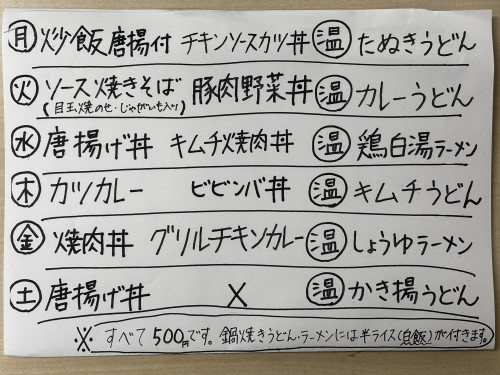 月 炒飯 唐揚付 チキンソースカツ丼 温 たぬきうどん
火 ソース焼きそば 豚肉野菜丼 温 カレーうどん
(目玉焼のせ・じゃがいも入り)
水 唐揚げ丼 キムチ焼肉丼 温 鶏白湯ラーメン
木 カツカレー ビビンバ丼 温 キムチうどん
金 焼肉丼 グリルチキンカレー 温 しょうゆラーメン
土 唐揚げ丼 × 温 かき揚うどん
※ すべて500円です。鍋焼きうどん・ラーメンには半ライス(魚飯)が付きます。